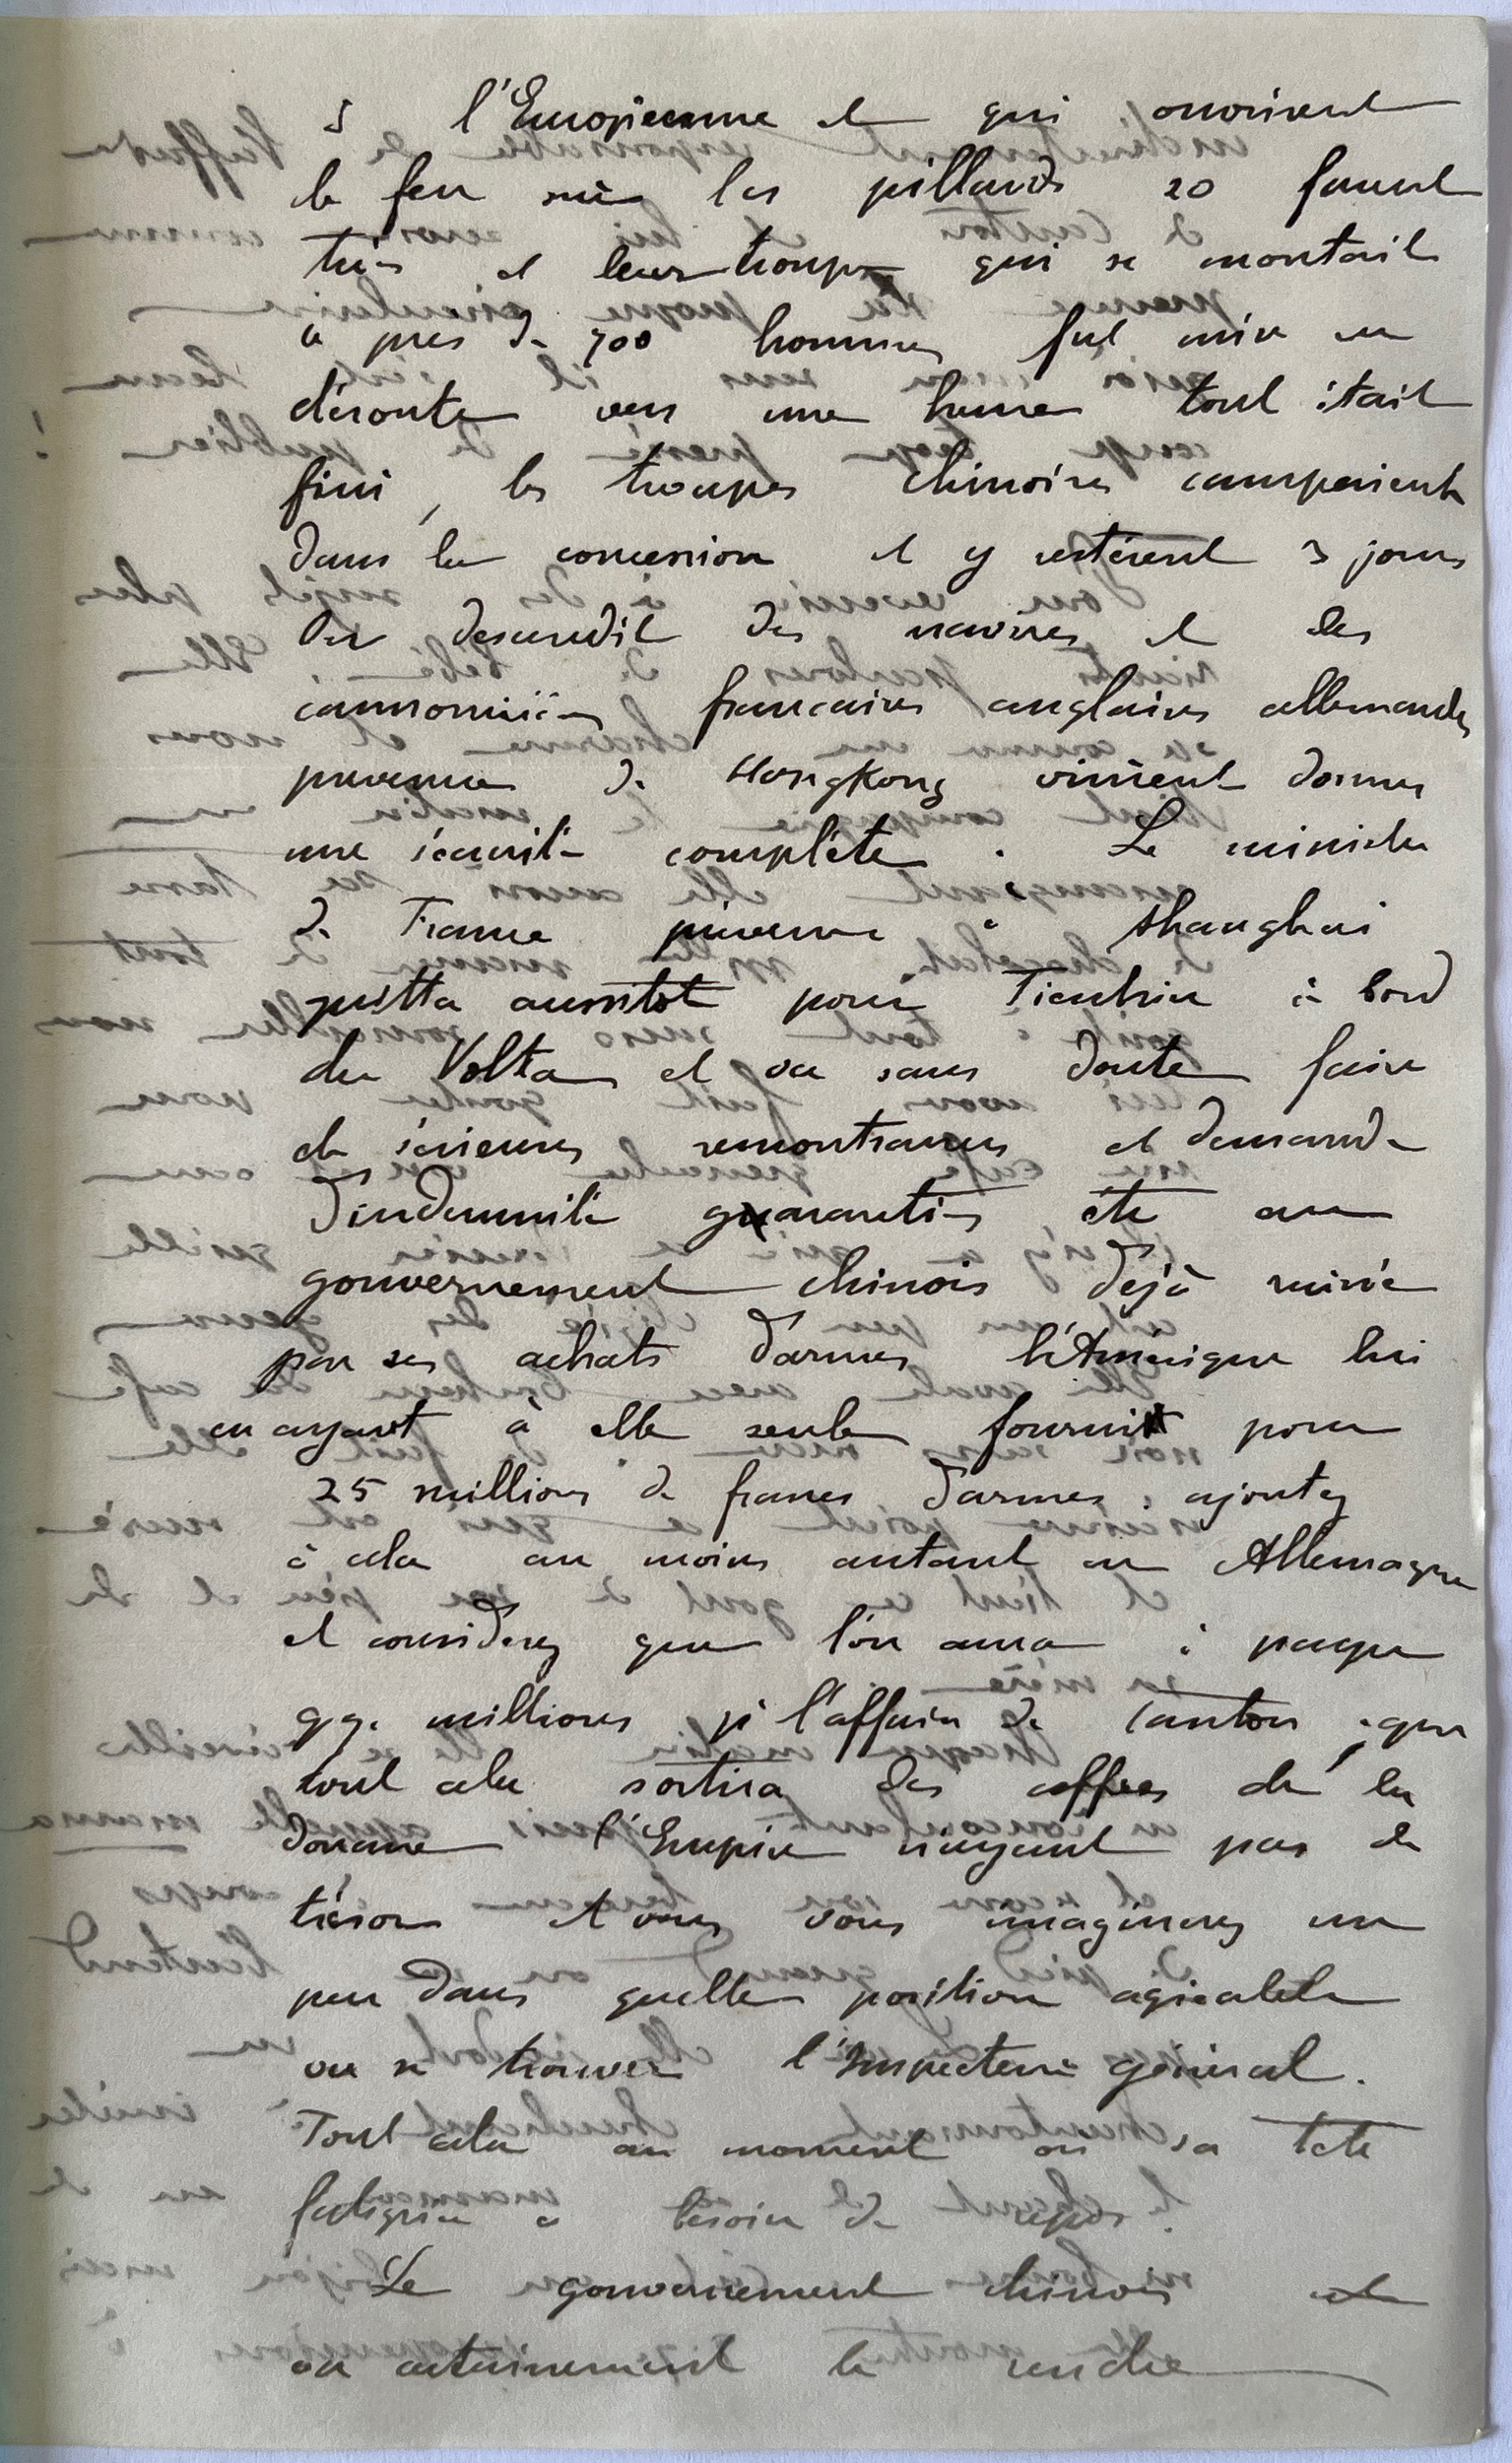 s l'Européenne et qui ouvrirent
le feu sur les pillards 20 furent
tués et leur troupe qui se montait
à près de 700 hommes fut mise en
déroute vers une heure tout était
fini, les troupes chinoises campèrent
dans la concession et y restèrent 3 jours
On descendit des navires et des
cannonières francaises anglaises allemandes
prévenues de HongKong vinrent donner
une sécurité complète. Le ministre
de France prévenu à Shanghai
partit aussitôt pour Tientsin à bord
du Volta et va sans doute faire
de sérieuses remontrances et demande
d'indemnité garanties etc au
gouvernement chinois déjà ruiné
par ses achats d'armes l'Amérique lui
en ayant à elle seule fourni pour
25 millions de francs d'armes; ajoutez
à cela au moins autant en Allemagne
et considerez que l'on aura à payer
qq. millions pr l'affaire de Canton, que
tout cela sortira des coffres de la
Douane l'Empire n'ayant pas de
trésor et vous vous imaginerez un
peu dans quelle position agréable
va se trouver l'Inspecteur général.
Tout cela au moment où sa tete
fatiguée a besoin de repos.
Le gouvernement chinois
va certainement le rendre